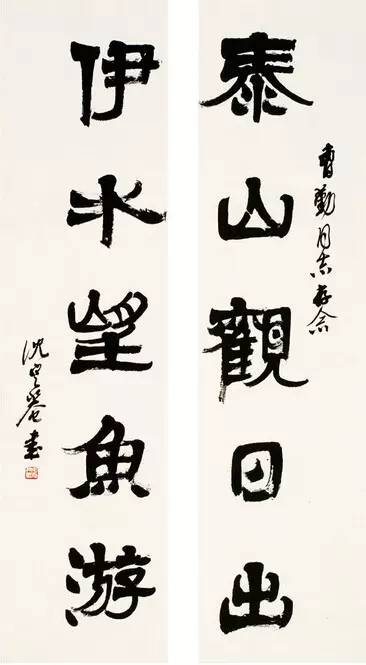 泰山觀日出
曹勤同志存念
伊水望魚游
沈定庵書